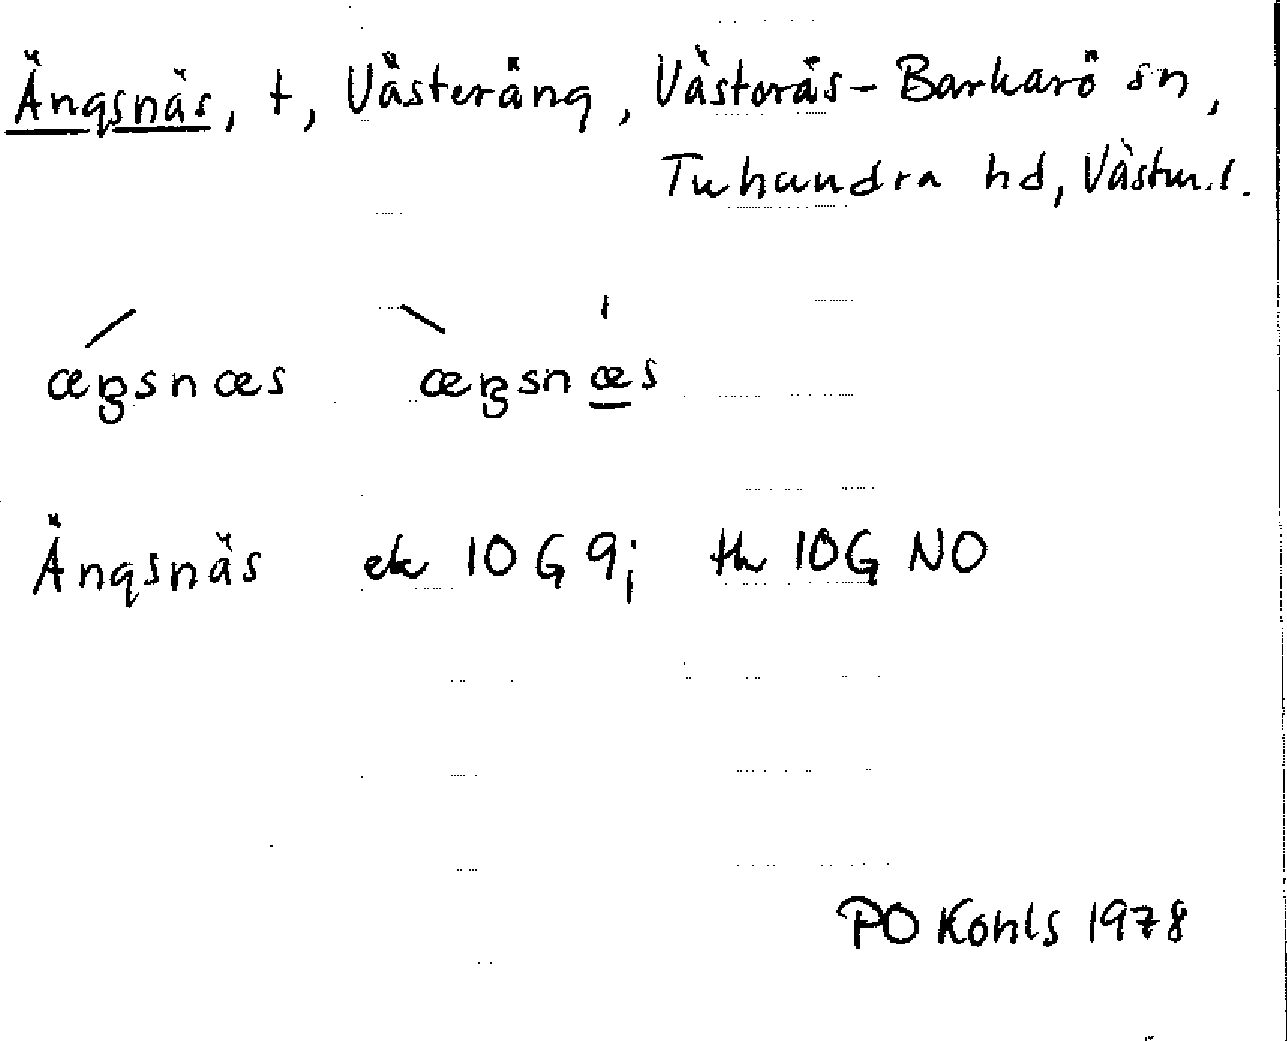 Ängsnäs, t, Västeräng, Västerås-Barkarö sn,
Tuhundra hd, Västm.l.
æŋsnæs æŋsnæs
Ängsnäs ek 10 G 9; th 10G NO
PO Kohls 1978